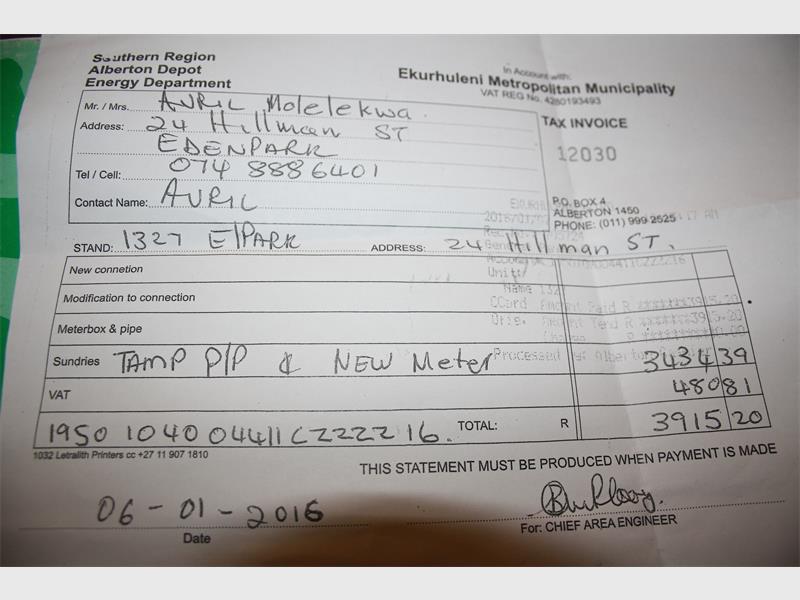 Southern Region
Alberton Depot
Energy Department
In Account with:
Ekurhuleni Metropolitan Municipality
VAT REG No. 4280193493
Mr. / Mrs. AVRIL Molelekwa
Address: 24 Hillman ST
EDENPARK
Tel / Cell: 074 8886401
Contact Name: AVRIL
TAX INVOICE
12030
P.O. BOX 4
ALBERTON 1450
PHONE: (011) 999 2525
STAND: 1327 E/PARK ADDRESS: 24 Hillman ST.
New connetion
Modification to connection
Meterbox & pipe
Sundries TAMP P/P & NEW Meter 3434 39
VAT 480 81
1950 1040 04411CZZZZZ16. TOTAL: R 3915 20
1032 Letralith Printers cc +27 11 907 1810
THIS STATEMENT MUST BE PRODUCED WHEN PAYMENT IS MADE
06 - 01 - 2016
Date
For: CHIEF AREA ENGINEER